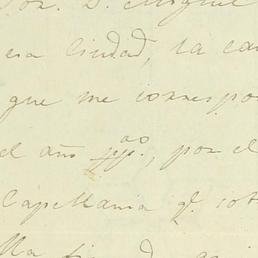 Sor. D. Miguel
esa Ciudad, la can
que me correspo
el año ppo., por el
Capellania qe.